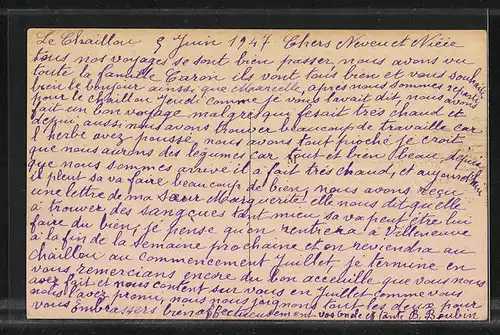 Le Chaillou 5 Juin 1947 Chers Neveu et Nièce
tous nos voyages se sont bien passer, nous avons vu
toute la famille Caron ils vont tous bien et vous souhaite
bien le bonjour ainsi que Marcelle, apres nous sommes reparti
pour le chaillou Jeudi comme je vous l'avait dit, nous avons
fait un bon voyage malgres qui fesait très chaud et
depui aussi nous avons trouver beaucoup de travaille car
l'herbe avez poussé, nous avons tout pioché je croit
que nous aurons des légumes car tout et bien beau, depuis
que nous sommes arrive il a fait très chaud, et aujourd'hui
il pleut sa va faire beaucoup de bien, nous avons reçu
une lettre de ma sœur Marguerite elle nous dit qu'elle
a trouver des sangçues tant mieu sa va peut être lui
faire du bien, je pense qu'on rentrera à Villeneuve
à la fin de la semaine prochaine et on reviendra au
chaillou au commencement Juillet, je termine en
vous remercians encore du bon acceuille que vous nous
avez fait et nous content sur vous en Juillet comme vous
nous l'avez promi, nous nous joignons tout les deux pour
vous embrassers bien affectueusement vos oncle et tante B. Boubin